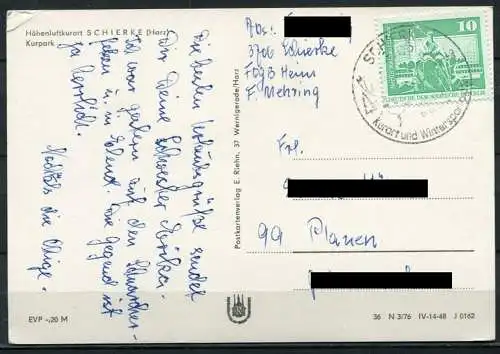 Höhenluftkurort SCHIERKE (Harz)
Kurpark
Die besten Urlaubsgrüße sendet
Dir Deine Schwester Monika.
Ich war gestern auf den
u. in Elend. Die Gegend ist
ja herrlich.
Nochmals die Obige.
Postkartenverlag E. Riehn, 37 Wernigerode/Harz
Abs:
3706 Schierke
FDGB Heim
F. Mehring
10
DEUTSCHE DEMOKRATISCHE REPUBLIK
SCHIERKE
Kurort und Wintersport
Frl.
99 Plauen
EVP -,20 M
36 N 3/76 IV-14-48 J 0162